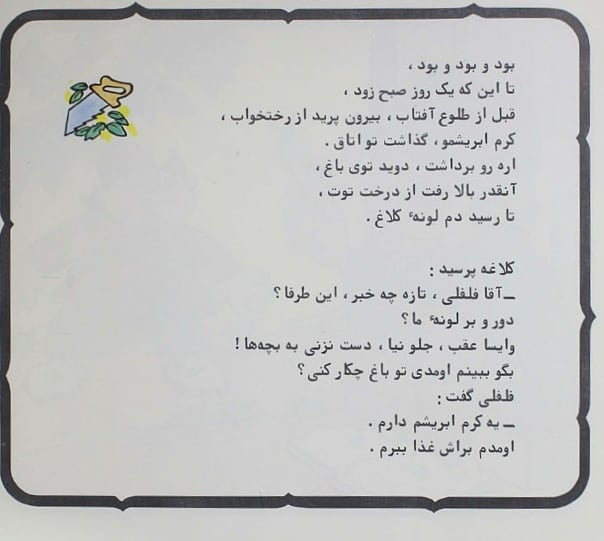 بود و بود و بود ،
تا این که یک روز صبح زود ،
قبل از طلوع آفتاب ، بیرون پرید از رختخواب ،
کرم ابریشمو، گذاشت تو اتاق .
اره رو برداشت ، دوید توی باغ ،
آنقدر بالا رفت از درخت توت ،
تا رسید دم لونهٔ کلاغ .
کلاغه پرسید :
ــ آقا فلفلی ، تازه چه خبر ، این طرفا ؟
دور و بر لونهٔ ما ؟
وایسا عقب ، جلو نیا ، دست نزنی به بچه‌ها !
بگو ببینم اومدی تو باغ چکار کنی ؟
فلفلی گفت :
ــ یه کرم ابریشم دارم .
اومدم براش غذا ببرم .